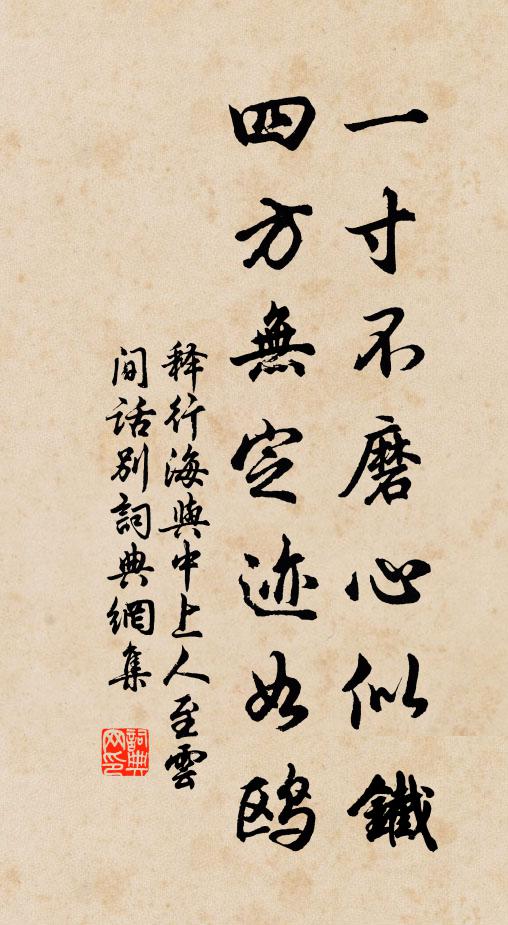 一寸不磨心似鐵
四方無定迹如鸥
释行海與中上人至雲
间话别詞典網集
詞典网印